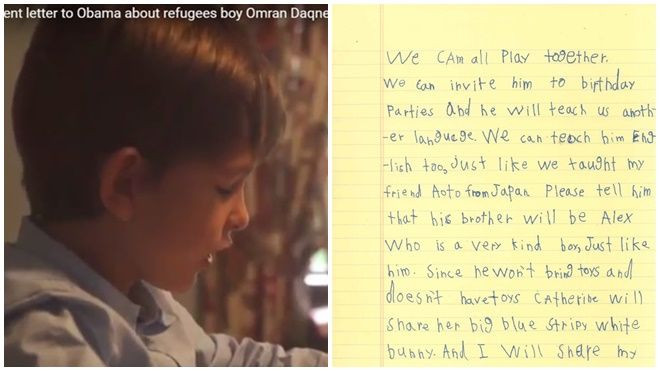 ent letter to Obama about refugees boy Omran Daqne
We CAm all Play together.
We can invite him to birthday
Parties and he will teach us anoth-
-er language. We can teach him Eng
-lish too, Just like we taught my
friend Aoto from Japan Please tell him
that his brother will be Alex
Who is a very kind boy, Just like
him. Since he won't bring toys and
doesn't have toys Catherine will
share her big blue stripy white
bunny. And I will share my